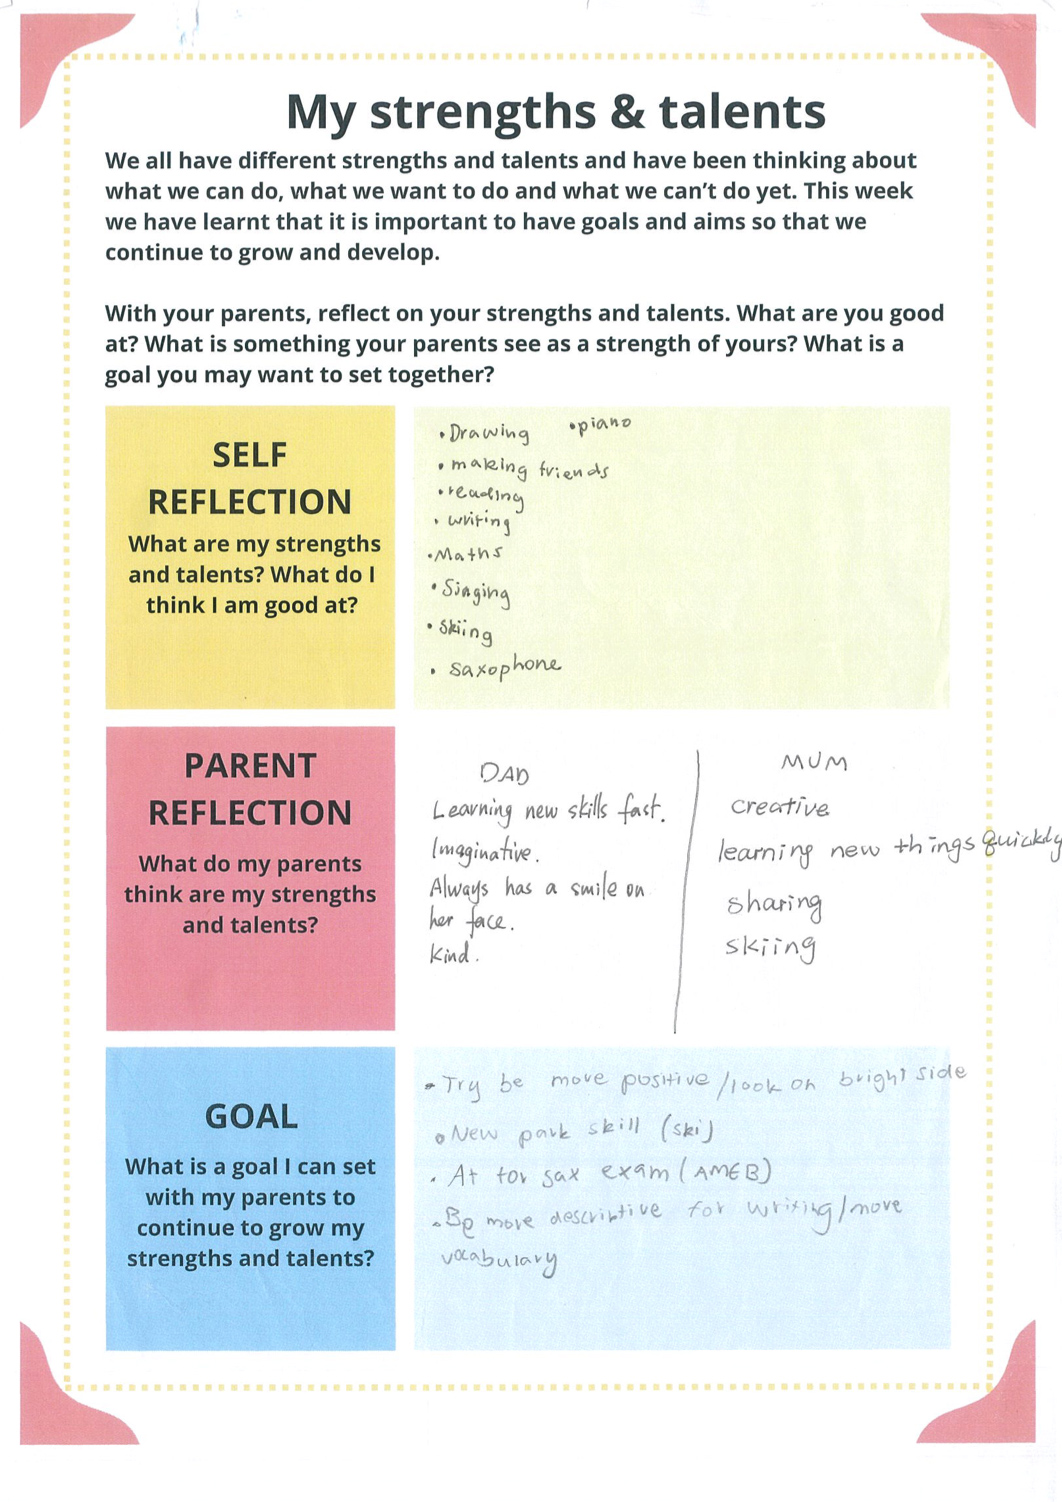 My strengths & talents
We all have different strengths and talents and have been thinking about
what we can do, what we want to do and what we can't do yet. This week
we have learnt that it is important to have goals and aims so that we
continue to grow and develop.
With your parents, reflect on your strengths and talents. What are you good
at? What is something your parents see as a strength of yours? What is a
goal you may want to set together?
SELF
REFLECTION
What are my strengths
and talents? What do I
think I am good at?
• Drawing • piano
• making friends
• reading
• writing
• Maths
• Singing
• Skiing
• saxophone
PARENT
REFLECTION
What do my parents
think are my strengths
and talents?
DAD
Learning new skills fast.
Imaginative.
Always has a smile on
her face.
Kind.
MUM
creative
learning new things quickly
sharing
skiing
GOAL
What is a goal I can set
with my parents to
continue to grow my
strengths and talents?
• Try be more positive / look on bright side
• New park skill (ski)
• A+ for sax exam (AMEB)
• Be more descriptive for writing / more
vocabulary